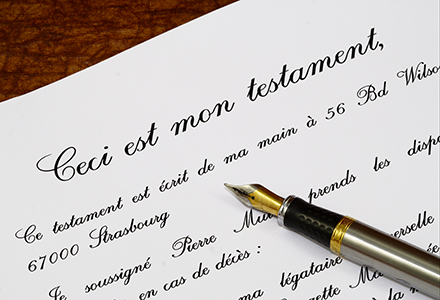 Ceci est mon testament,
Ce testament est écrit de ma main à 56 Bd Wilso
67000 Strasbourg
Je soussigné Pierre prends les dispo
en cas de décès :
ma légataire universelle